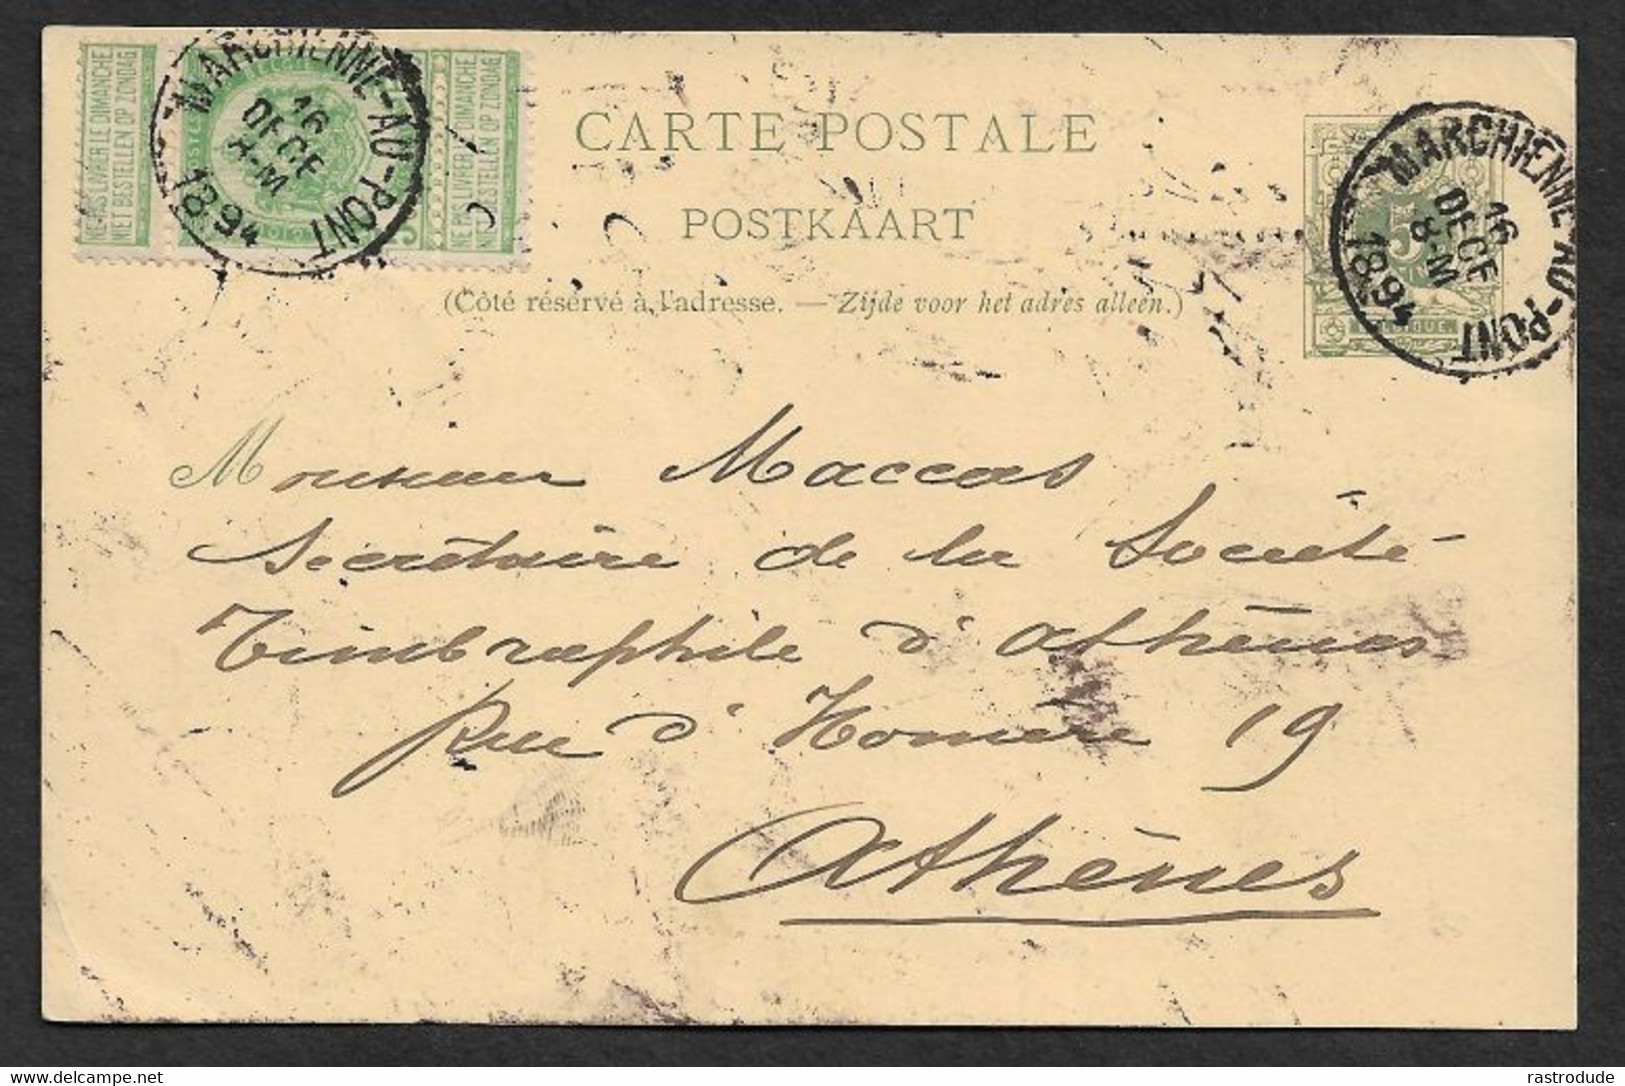 NE PAS LIVRER LE DIMANCHE
NIET BESTELLEN OP ZONDAG
NE PAS LIVRER LE DIMANCHE
NIET BESTELLEN OP ZONDAG
5
MARCHIENNE-AU-PONT
16
DECE
8-M
1894
CARTE POSTALE
POSTKAART
(Côté réservé à l'adresse. — Zijde voor het adres alleen.)
5
BELGIQUE
MARCHIENNE-AU-PONT
16
DECE
8-M
1894
Monsieur Maccas
Secrétaire de la Société
Timbrophile d'Athènes
Rue d'Homère 19
Athènes
www.delcampe.net
rastrodude